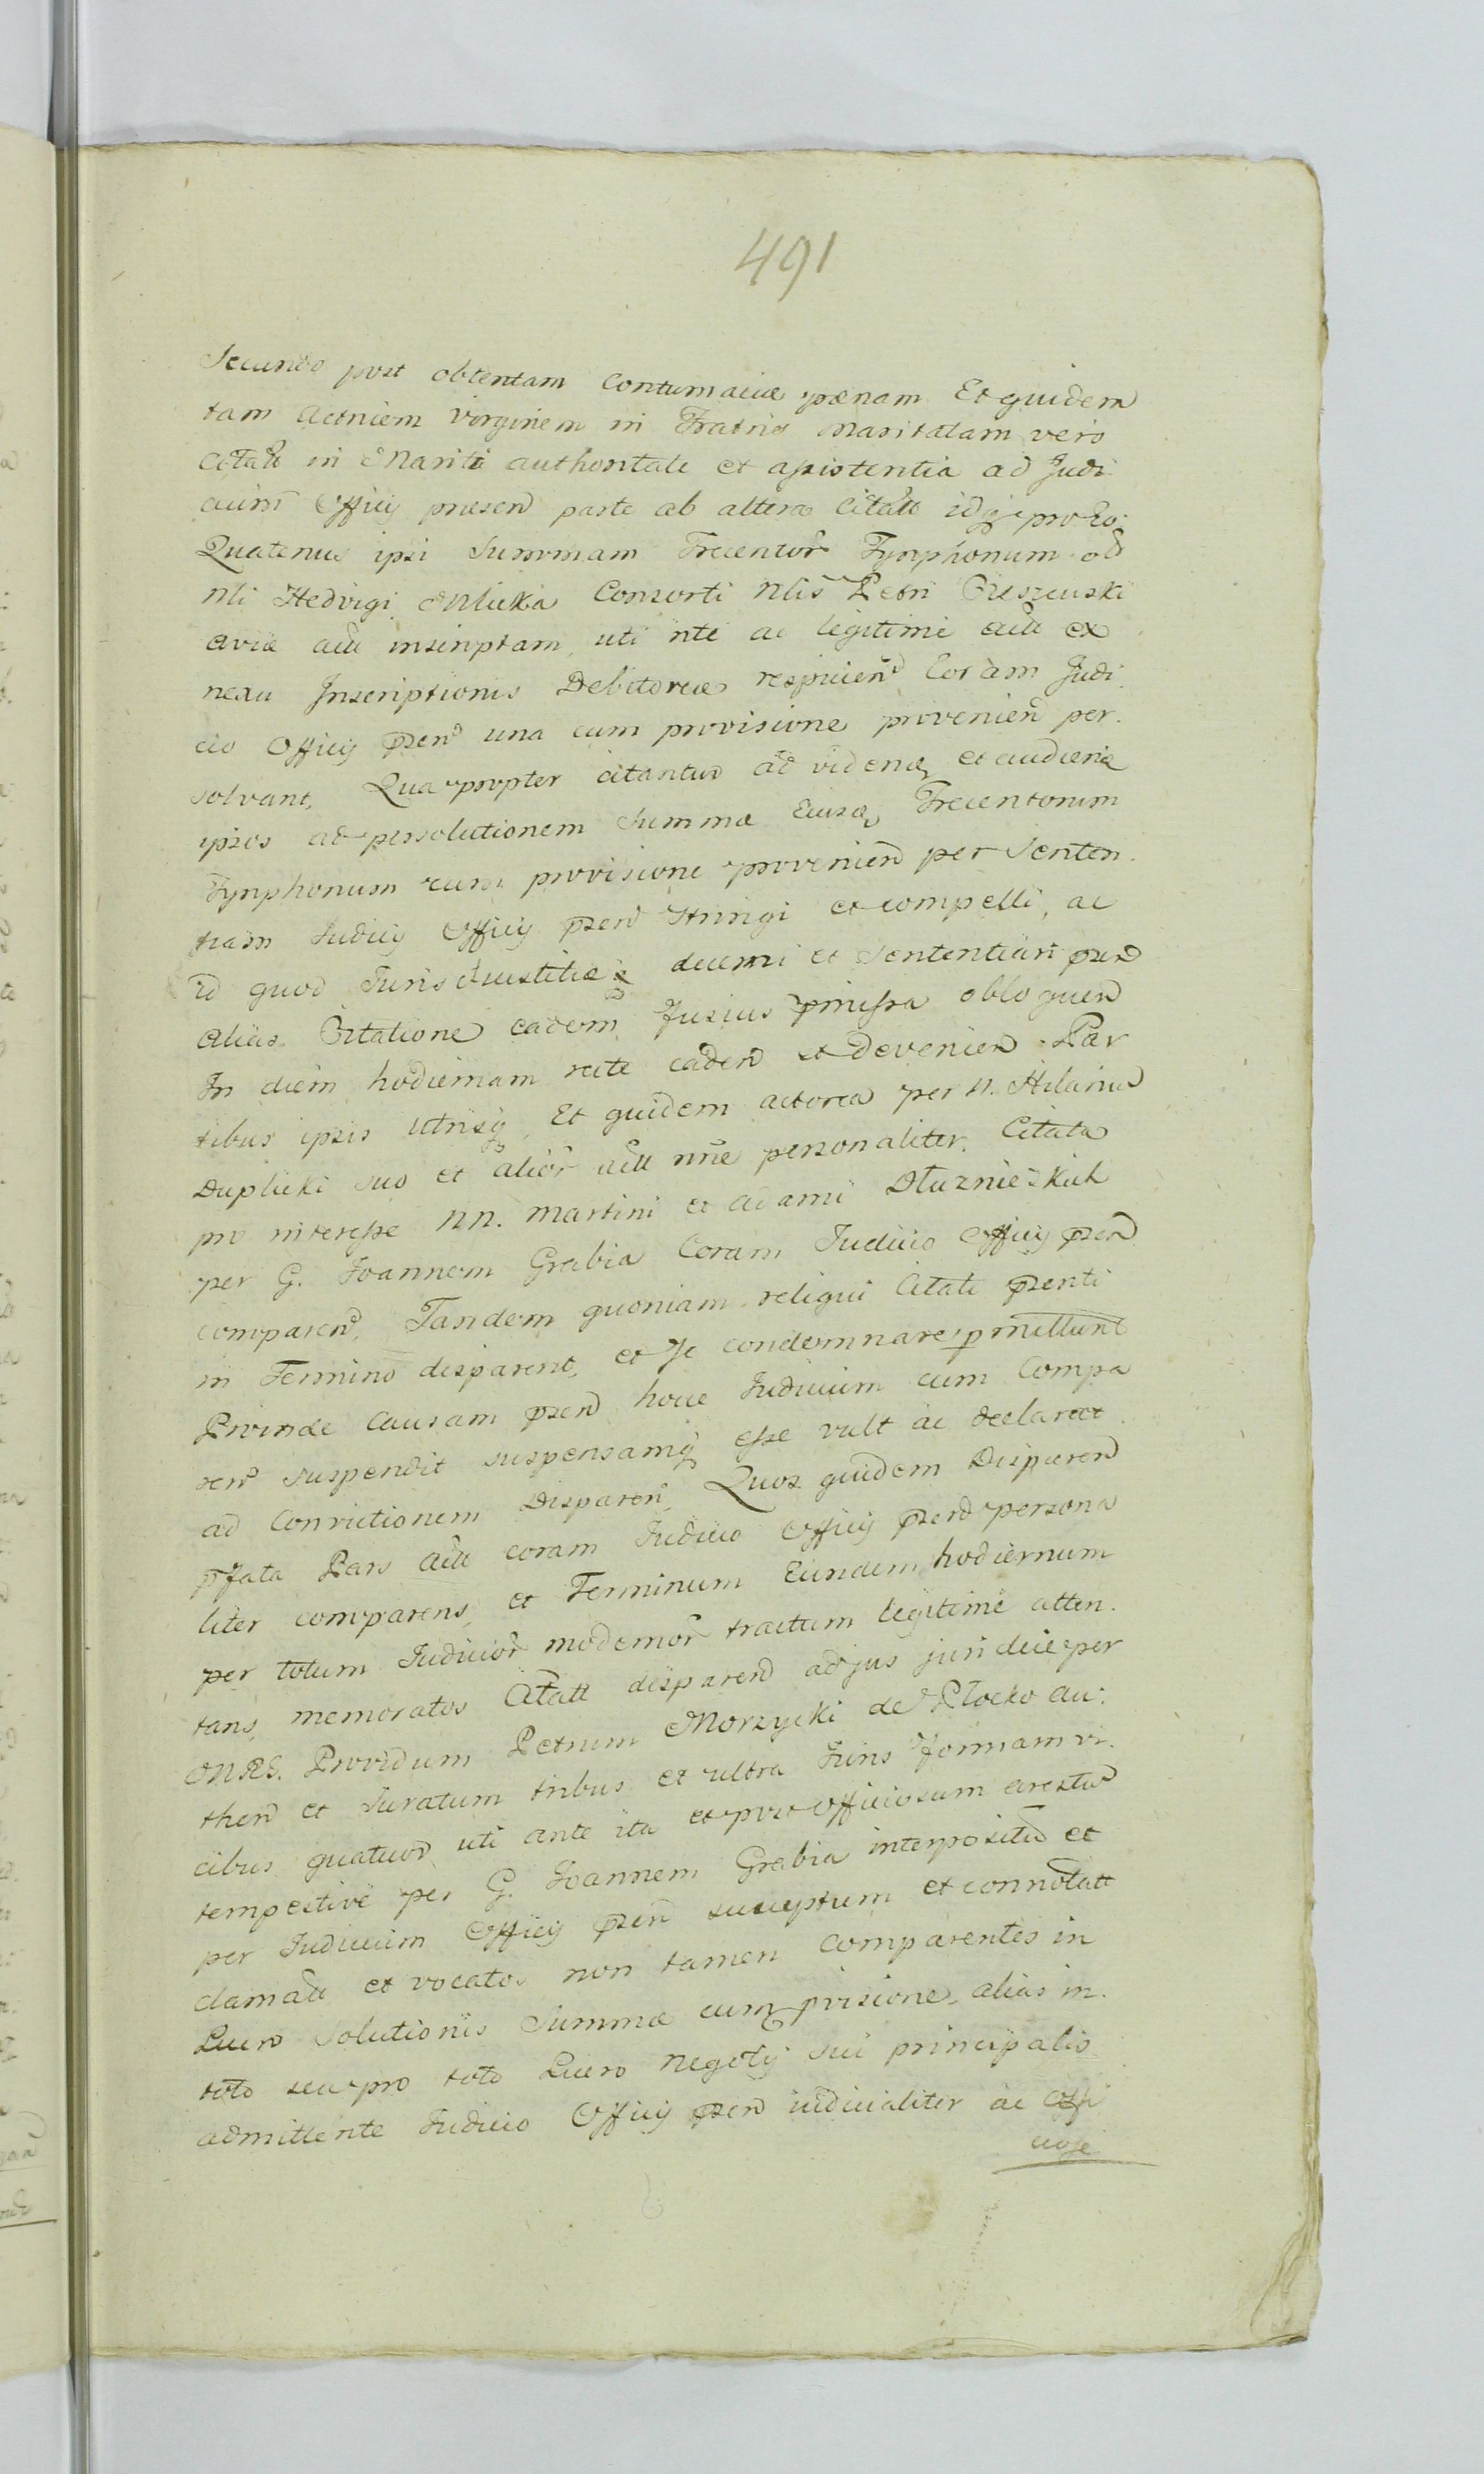 491
Secundo post obtentam Contumaciæ pænam Et quidem
tam Actricem Virginem in Fratris Maritatam vero
Citatt in Mariti authoritate et assistentia ad Judi
cium Officij præsen parte ab altera Citatt idq pro Eo:
Quatenus ipsi Summam Trecentor Tynphonum ob
Nli Hedvigi Mlicka Consorti Nlis Petri
aviæ actt inscriptam, uti nte ac legitime actt ex
nexu Inscriptionis Debitoreæ respicien Coram Judi
cio Officij pzen una cum provisione provenien per
solvant, Qua propter citantur ad videnq et audienq
ipsos ad persolutionem Summæ Eiusq Trecentorum
Tynphonum cum provisione provenien per Senten
tiam Judicij Officij pzen Stringi et compelli, ac
id quod Juris Justitiæq decerni et Sententiari pzen
alias Citatione eadem fusius pmissa obloquen
In diem hodiernam recte caden et devenien Par
tibus ipsis Utrisq Et quidem actorea per N. Hilarium
Duplicki suo et alior actt nne personaliter. Citata
pro interesse NN. Martini et Adami Dłuznieskich
per G. Joannem Grabia Coram Judicio Officij pzen
comparen, Tandem quoniam reliqui Citati pzenti
in Termino disparent, et se condemnare pmittunt
Proinde Causam pzen hocce Judicium cum Compa
ren suspendit suspensamq esse vult ac declarat
ad Convictionem Disparen, Quos quidem Disparen
pfata Pars Actt coram Judicio Officij pzen persona
liter comparens et Terminum Eundem hodiernum
per totum Judicior modernor tractum legitime atten
tans, memoratos Citatt disparen ad jus juridice per
MRS. Providum Petrum Morzycki de Płocko au:
then et Juratum tribus et ultra Juris formam vi
cibus quatuor uti ante ita et post officiosum arestum
tempestive per G. Joannem Grabia interpositum et
per Judicium Officij pzen susceptum et connotatt
clamatt et vocatos non tamen comparentes in
Lucro Solutionis Summæ cum prisione, alias in
toto seu pro toto Lucro negotij sui principalis
admittente Judicio Officij pzen iudicialiter ac Offi
ciose